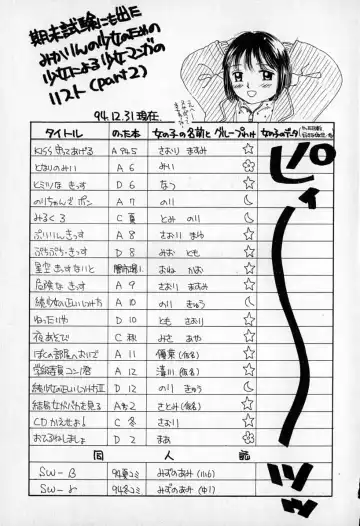 期末試験にも出た
みかりんの少女のための
少女による少女マンガの
リスト(part2)
94.12.31現在.
タイトル のった本 女の子の名前と グループわけ 女の子のデータ
KISS 守ってあげる A 94.5 さおり ますみ ☆
となりのみい A 6 みい
ヒミツな きっす D 6 なつ ☆
のりちゃんでポン A 7 のり ☾
みるく3 C 夏 とみ のり ☾
ぷりりんきっす A 8 さおり まゆ ☆
ぷちぷち・きっす D 8 みお とも ☆
星空 きっすないと おね かお ☆
危険な きっす A 9 さおり ますみ ☆
続少女の正しいいじめ方 A 10 のり きゅう ☾
ねったいや D 10 とも さおり ☆
夜あそびで C 秋 みさ あや ☆
ぼくの部屋へおいで A 11 優菜(仮名) ☆
学級委員コン1君 A 12 清川(仮名) ☆
続少女の正しいいじめ方II D 12 のり きゅう ☾
結局女がバカを見る さとみ(仮名) ☆
CDかえせよ! C 冬 さおり ☆
おでむねしましょ D 2 まあ
同人誌
SW-β 94夏コミ みずのあみ(小6)
SW-γ 94冬コミ みずのあみ(中1)
ピィーーッッ